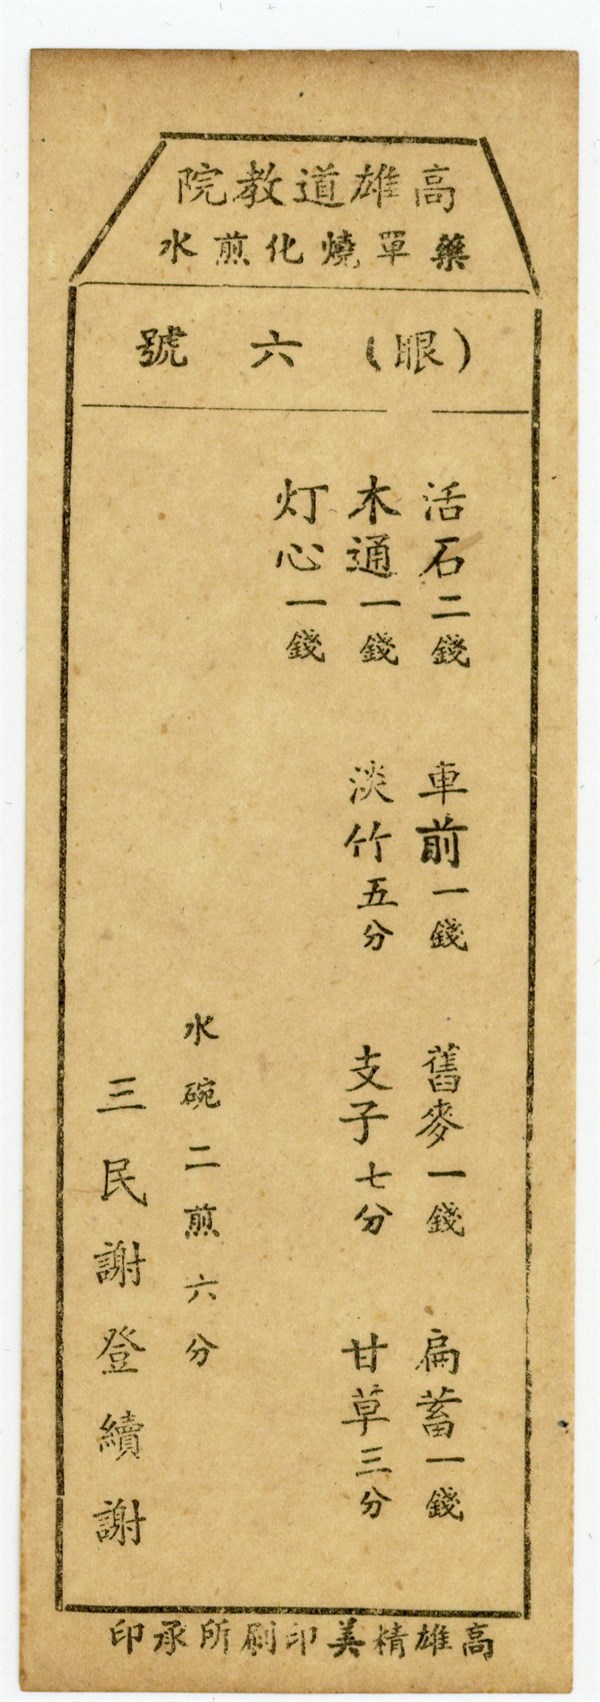 高雄道教院
藥單燒化煎水
(眼)六號
活石二錢 車前一錢 舊麥一錢 扁蓄一錢
木通一錢 淡竹五分 支子七分 甘草三分
灯心一錢
水碗二煎六分
三民謝登續謝
高雄精美印刷所承印